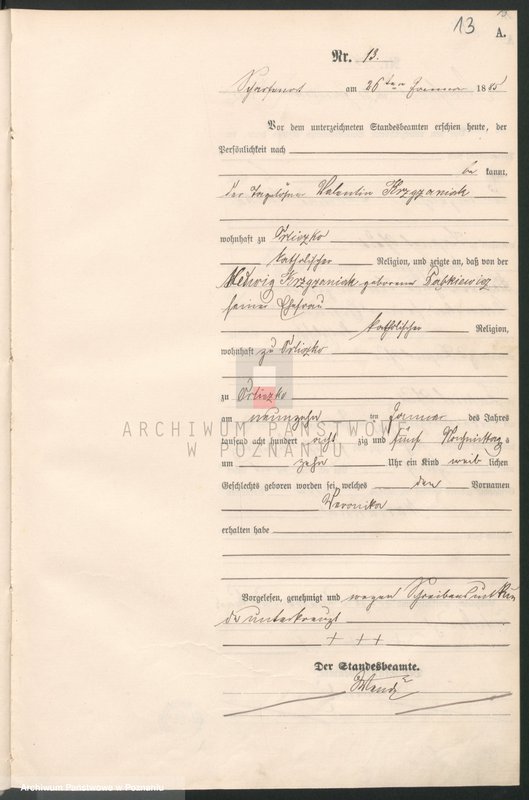 13
A.
Nr. 13.
Scharfenort am 26ten Januar 1885
Vor dem unterzeichneten Standesbeamten erschien heute, der
Persönlichkeit nach
be kannt,
der Tagelöhner Valentin Krzyzaniak
wohnhaft zu Orliczko
katholischer Religion, und zeigte an, daß von der
Hedwig Krzyzaniak geborene
seiner Ehefrau
katholischer Religion,
wohnhaft zu Orliczko
zu Orliczko
am neunzehn ten Januar des Jahres
tausend acht hundert acht zig und fünf Nachmittags
um zehn Uhr ein Kind weib lichen
Geschlechts geboren worden sei, welches den Vornamen
Veronika
erhalten habe
Vorgelesen, genehmigt und wegen Schreibensunkun
de unterkreuzt
+ + +
Der Standesbeamte.
ARCHIWUM PAŃSTWOWE
W POZNANIU
Archiwum Państwowe w Poznaniu